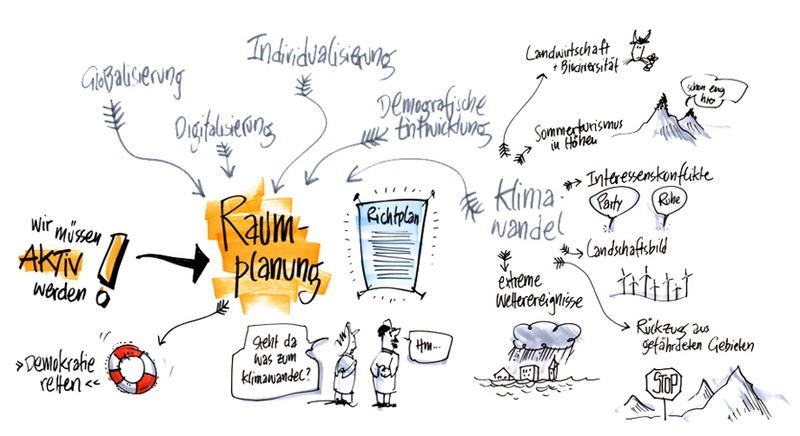 Globalisierung
Individualisierung
Digitalisierung
Demografische
Entwicklung
Landwirtschaft
+ Biodiversität
schon eng
hier
Sommerturismus
in Höhen
Klima-
wandel
Interessenskonflikte
Party
Ruhe
Landschaftsbild
extreme
Wetterereignisse
Rückzug aus
gefährdeten Gebieten
STOP
wir müssen
AKTiV
werden
!
Raum-
planung
Richtplan
»Demokratie
retten«
Steht da
was zum
Klimawandel?
Hm...